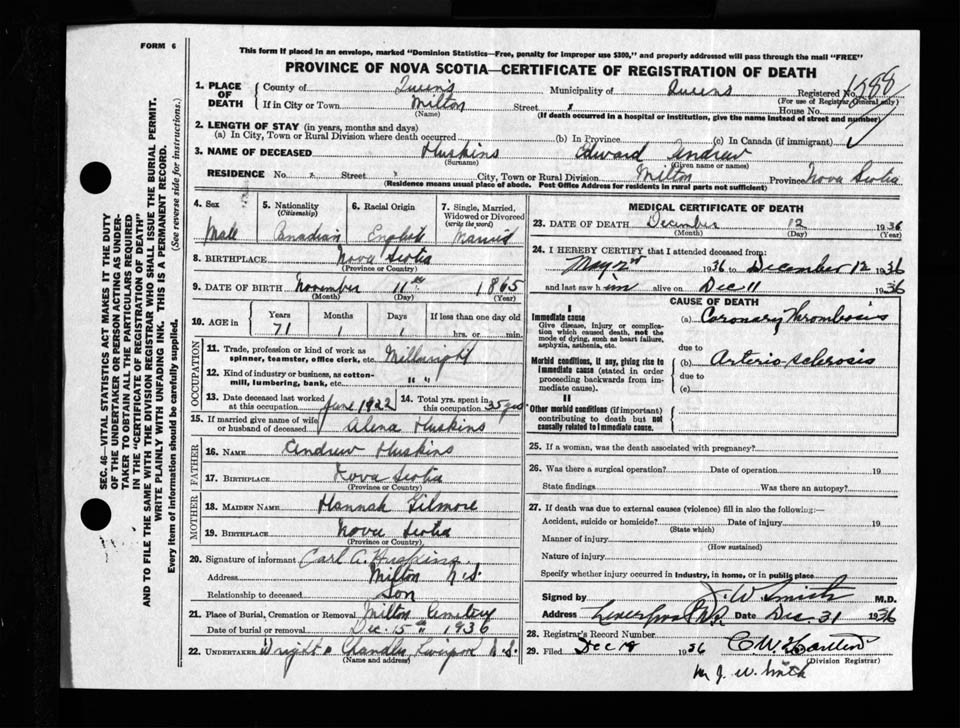 FORM 6
This form if placed in an envelope, marked "Dominion Statistics—Free, penalty for improper use $300," and properly addressed will pass through the mail "FREE"
PROVINCE OF NOVA SCOTIA—CERTIFICATE OF REGISTRATION OF DEATH
1. PLACE OF DEATH
County of Queens Municipality of Queens Registered No.
(For use of Registrar General only)
If in City or Town Milton Street House No.
(Name) (If death occurred in a hospital or institution, give the name instead of street and number)
2. LENGTH OF STAY (in years, months and days)
(a) In City, Town or Rural Division where death occurred (b) In Province (c) In Canada (if immigrant)
3. NAME OF DECEASED Huskins Edward Andrew
(Surname) (Given name or names)
RESIDENCE No. Street City, Town or Rural Division Milton Province Nova Scotia
(Residence means usual place of abode. Post Office Address for residents in rural parts not sufficient)
4. Sex 5. Nationality (Citizenship) 6. Racial Origin 7. Single, Married, Widowed or Divorced (write the word)
Male Canadian English Married
8. BIRTHPLACE Nova Scotia
(Province or Country)
9. DATE OF BIRTH November 11th 1865
(Month) (Day) (Year)
10. AGE in Years Months Days If less than one day old
71 1 1 hrs. or min.
OCCUPATION
11. Trade, profession or kind of work as spinner, teamster, office clerk, etc. Millwright
12. Kind of industry or business, as cotton-mill, lumbering, bank, etc. " "
13. Date deceased last worked at this occupation June 1922 14. Total yrs. spent in this occupation 35 yrs
15. If married give name of wife or husband of deceased Alena Huskins
FATHER
16. NAME Andrew Huskins
17. BIRTHPLACE Nova Scotia
(Province or Country)
MOTHER
18. MAIDEN NAME Hannah Gilmore
19. BIRTHPLACE Nova Scotia
(Province or Country)
20. Signature of informant Carl A. Huskins
Address Milton N.S.
Relationship to deceased Son
21. Place of Burial, Cremation or Removal Milton Cemetery
Date of burial or removal Dec. 15th 1936
22. UNDERTAKER Wright & Chandler Liverpool N.S.
(Name and address)
MEDICAL CERTIFICATE OF DEATH
23. DATE OF DEATH December 12 1936
(Month) (Day) (Year)
24. I HEREBY CERTIFY that I attended deceased from:
May 2nd 1936 to December 12 1936
and last saw him alive on Dec 11 1936
CAUSE OF DEATH
I
Immediate cause
Give disease, injury or complication which caused death, not the mode of dying, such as heart failure, asphyxia, asthenia, etc.
(a) Coronary Thrombosis
due to
Morbid conditions, if any, giving rise to immediate cause (stated in order proceeding backwards from immediate cause).
(b) Arterio sclerosis
due to
(c)
II
Other morbid conditions (if important) contributing to death but not causally related to immediate cause.
25. If a woman, was the death associated with pregnancy?
26. Was there a surgical operation? Date of operation 19
State findings Was there an autopsy?
27. If death was due to external causes (violence) fill in also the following:—
Accident, suicide or homicide? Date of injury 19
(State which)
Manner of injury
(How sustained)
Nature of injury
Specify whether injury occurred in industry, in home, or in public place
Signed by J. W. Smith M.D.
Address Liverpool N.S. Date Dec. 31 1936
28. Registrar's Record Number
29. Filed Dec 18 1936
(Division Registrar)
M J. W. Smith
SEC. 46—VITAL STATISTICS ACT MAKES IT THE DUTY
OF THE UNDERTAKER OR PERSON ACTING AS UNDER-
TAKER TO OBTAIN ALL THE PARTICULARS REQUIRED
IN THE "CERTIFICATE OF REGISTRATION OF DEATH"
AND TO FILE THE SAME WITH THE DIVISION REGISTRAR WHO SHALL ISSUE THE BURIAL PERMIT.
WRITE PLAINLY WITH UNFADING INK. THIS IS A PERMANENT RECORD.
Every item of information should be carefully supplied. (See reverse side for instructions.)